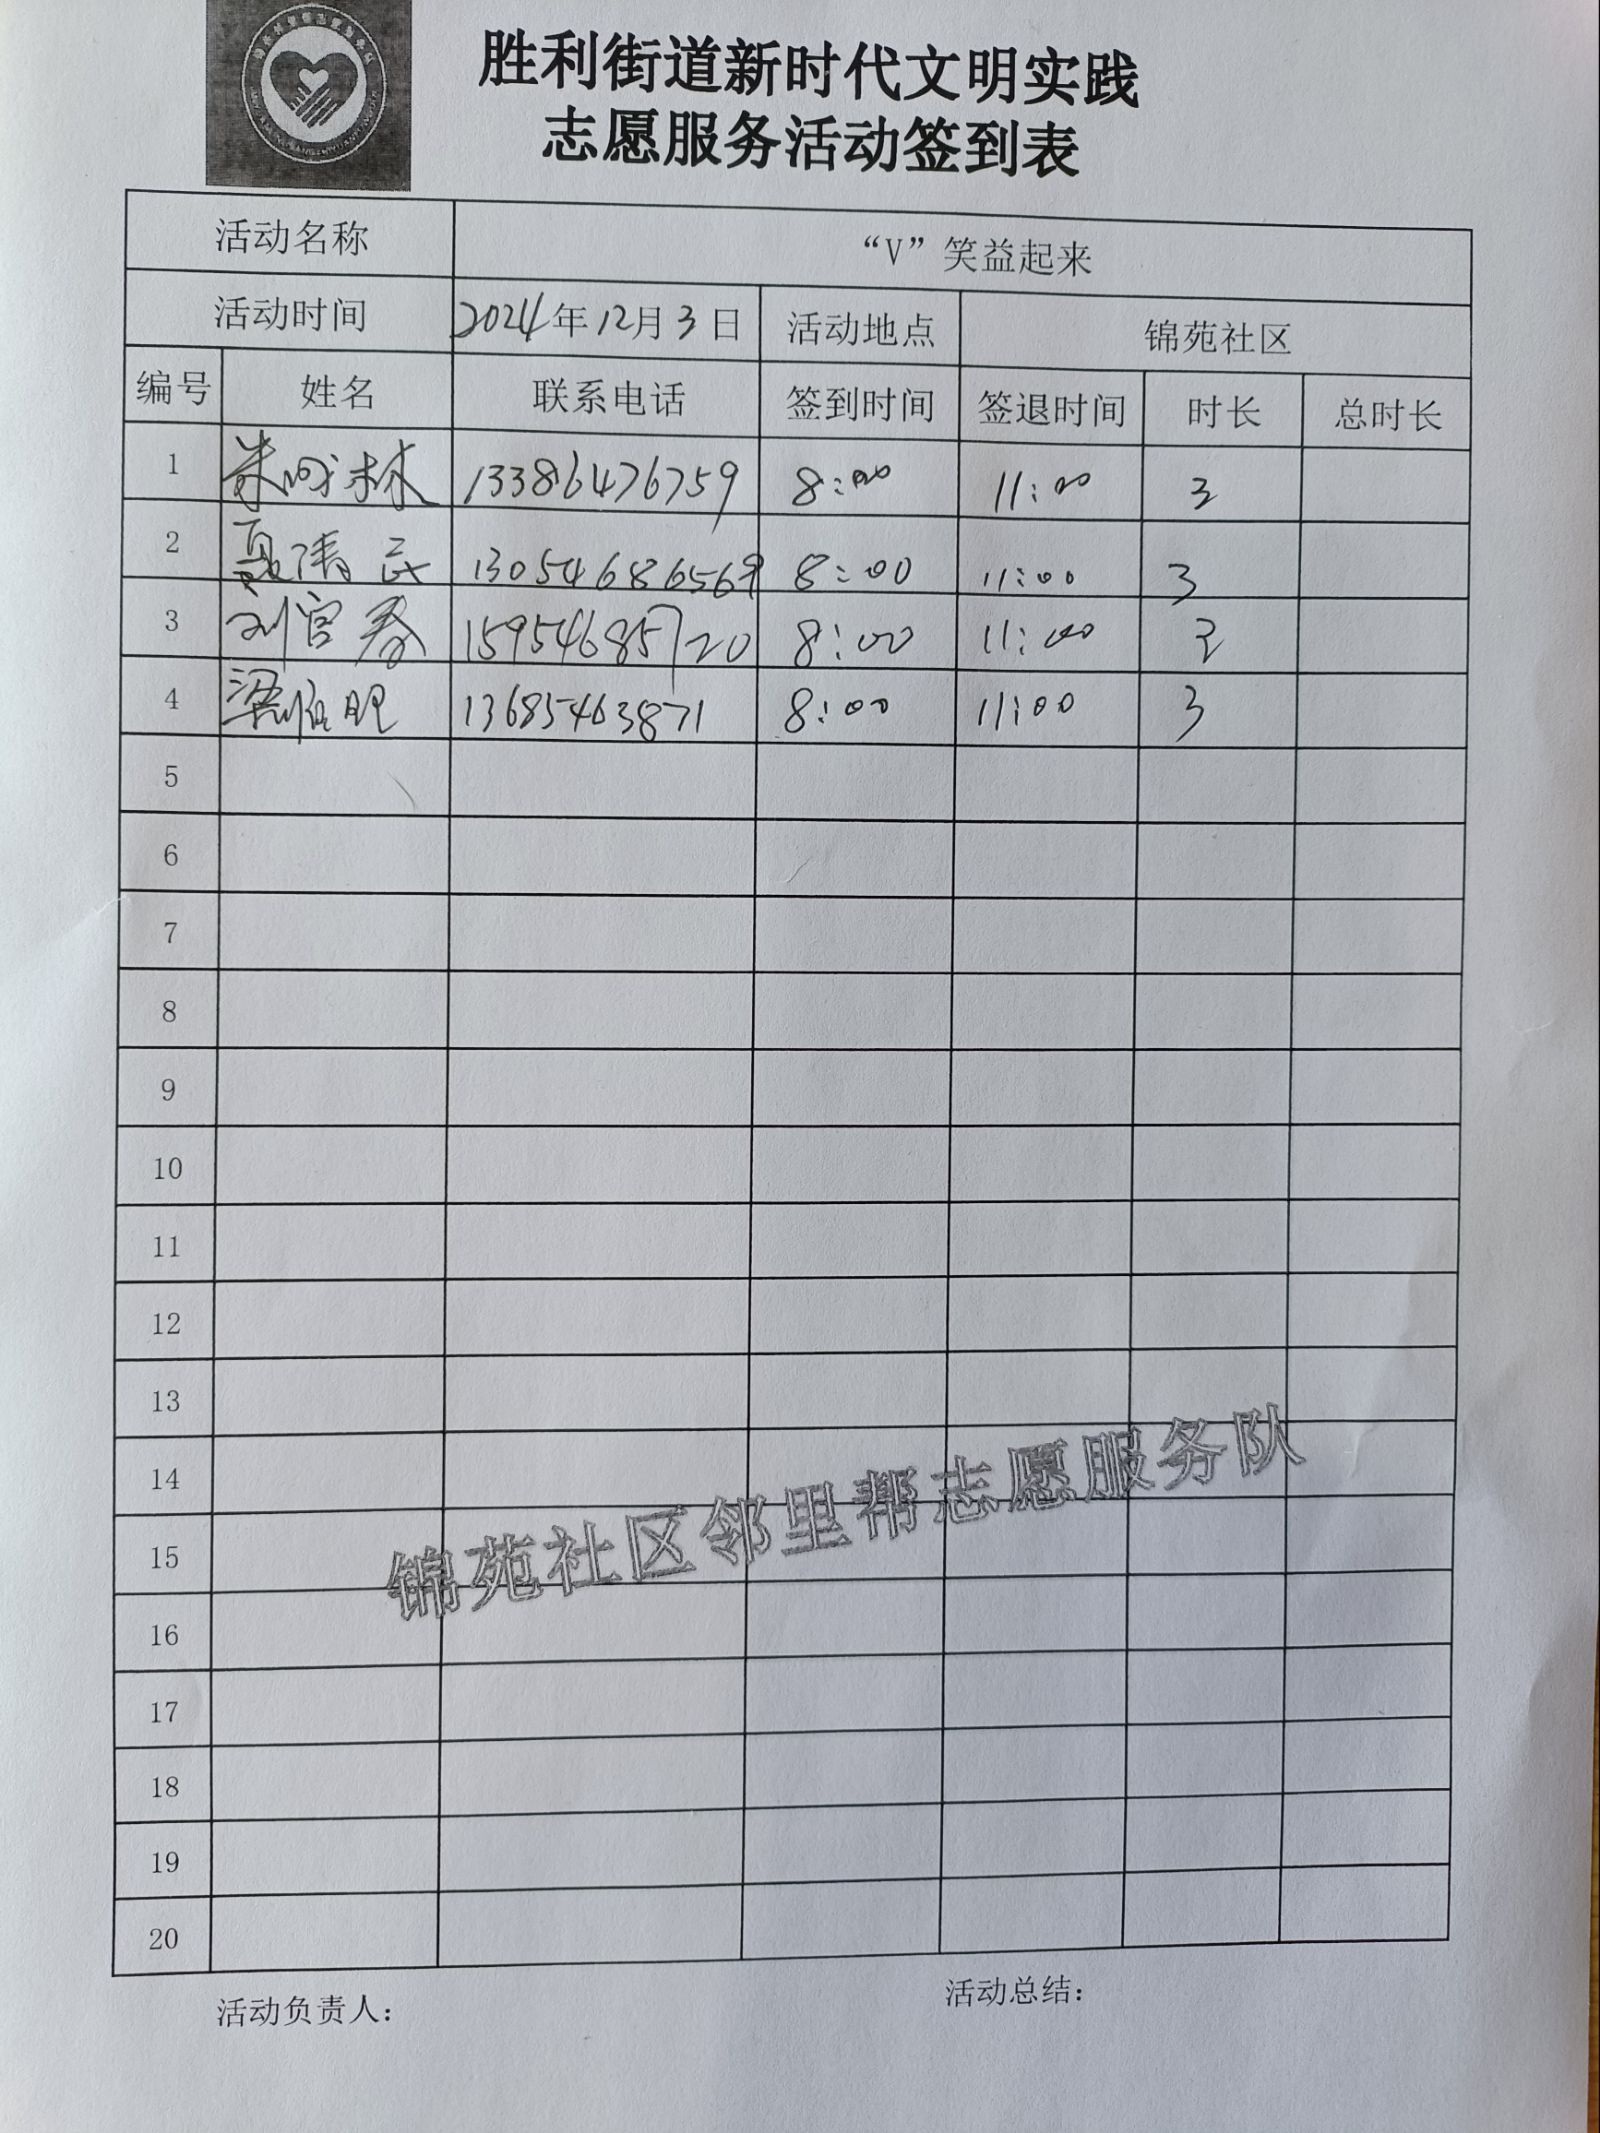 胜利街道新时代文明实践
志愿服务活动签到表
活动名称 “V”笑益起来
活动时间 2024年12月3日 活动地点 锦苑社区
编号 姓名 联系电话 签到时间 签退时间 时长 总时长
1 13386476759 8:00 11:00 3
2 13054686569 8:00 11:00 3
3 刘官春 15954685720 8:00 11:00 3
4 13685463871 8:00 11:00 3
5
6
7
8
9
10
11
12
13
14
锦苑社区邻里帮志愿服务队
15
16
17
18
19
20
活动负责人： 活动总结：